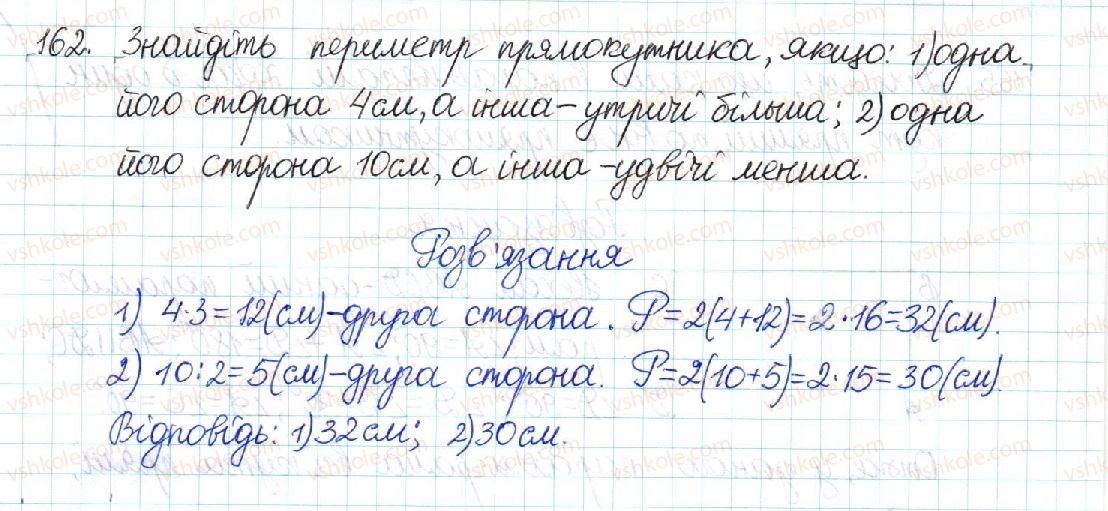 162. Знайдіть периметр прямокутника, якщо: 1) одна
його сторона 4см, а інша – утричі більша; 2) одна
його сторона 10см, а інша – удвічі менша.
Розв'язання
1) 4·3=12(см)–друга сторона. P=2(4+12)=2·16=32(см).
2) 10:2=5(см)–друга сторона. P=2(10+5)=2·15=30(см).
Відповідь: 1) 32см; 2) 30см.